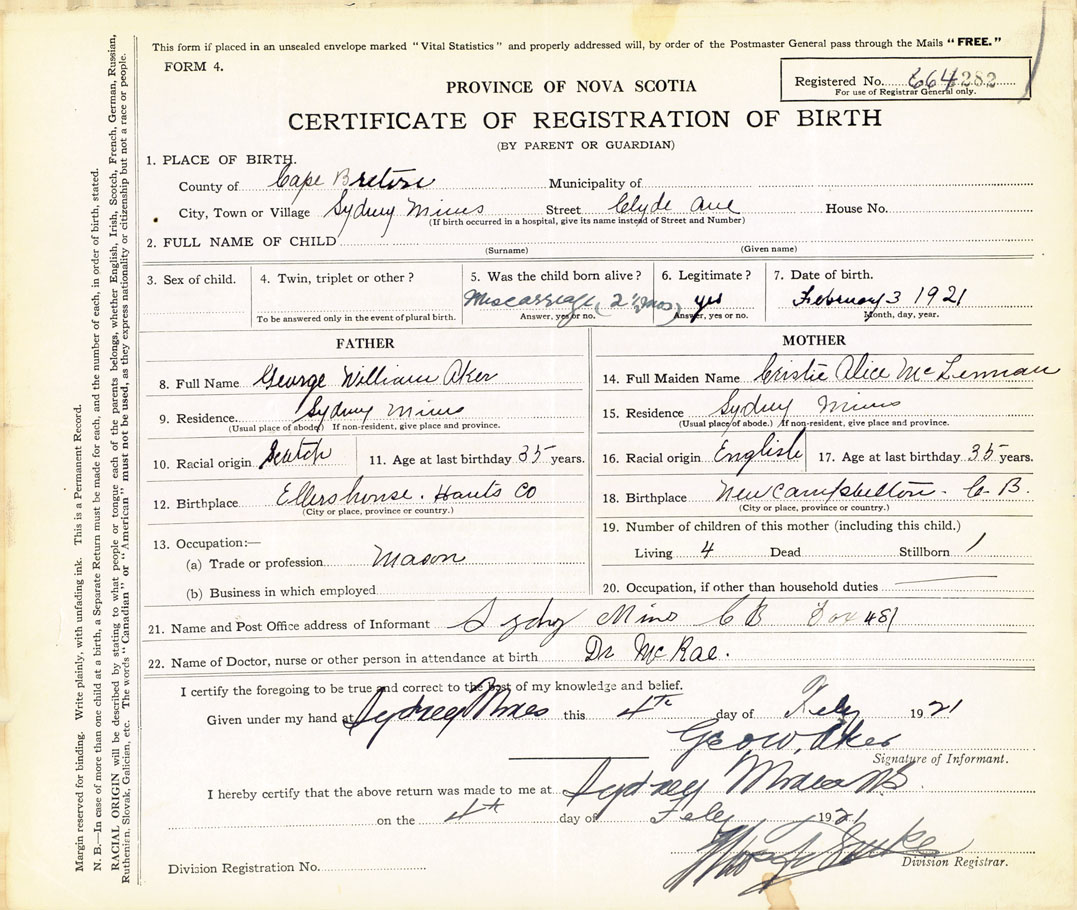 This form if placed in an unsealed envelope marked "Vital Statistics" and properly addressed will, by order of the Postmaster General pass through the Mails "FREE."
FORM 4.
Registered No. 664282
For use of Registrar General only.
PROVINCE OF NOVA SCOTIA
CERTIFICATE OF REGISTRATION OF BIRTH
(BY PARENT OR GUARDIAN)
1. PLACE OF BIRTH.
County of Cape Breton Municipality of
City, Town or Village Sydney Mines Street Clyde Ave House No.
(If birth occurred in a hospital, give its name instead of Street and Number)
2. FULL NAME OF CHILD
(Surname) (Given name)
3. Sex of child. 4. Twin, triplet or other? 5. Was the child born alive? 6. Legitimate? 7. Date of birth.
Miscarriage (2½ mos) yes February 3 1921
To be answered only in the event of plural birth. Answer, yes or no. Answer, yes or no. Month, day, year.
FATHER
8. Full Name George William Aker
9. Residence. Sydney Mines
(Usual place of abode.) If non-resident, give place and province.
10. Racial origin Scotch 11. Age at last birthday 35 years.
12. Birthplace Ellershouse. Hants Co
(City or place, province or country.)
13. Occupation:—
(a) Trade or profession Mason
(b) Business in which employed
MOTHER
14. Full Maiden Name Cristie Alice McLennan
15. Residence Sydney Mines
(Usual place of abode.) If non-resident, give place and province.
16. Racial origin English 17. Age at last birthday 35 years.
18. Birthplace New Campbellton - C. B.
(City or place, province or country.)
19. Number of children of this mother (including this child.)
Living 4 Dead Stillborn 1
20. Occupation, if other than household duties
21. Name and Post Office address of Informant Sydney Mines C B Box 481
22. Name of Doctor, nurse or other person in attendance at birth Dr McRae.
I certify the foregoing to be true and correct to the best of my knowledge and belief.
Given under my hand at Sydney Mines this 4th day of Feby 1921
Geo W. Aker
Signature of Informant.
I hereby certify that the above return was made to me at Sydney Mines NS
on the 4th day of Feby 1921
Division Registrar.
Division Registration No.
Margin reserved for binding. Write plainly, with unfading ink. This is a Permanent Record.
N. B.—In case of more than one child at a birth, a Separate Return must be made for each, and the number of each, in order of birth, stated.
RACIAL ORIGIN will be described by stating to what people or tongue each of the parents belongs, whether English, Irish, Scotch, French, German, Russian,
Ruthenian, Slovak, Galician, etc. The words "Canadian" or "American" must not be used, as they express nationality or citizenship but not a race or people.